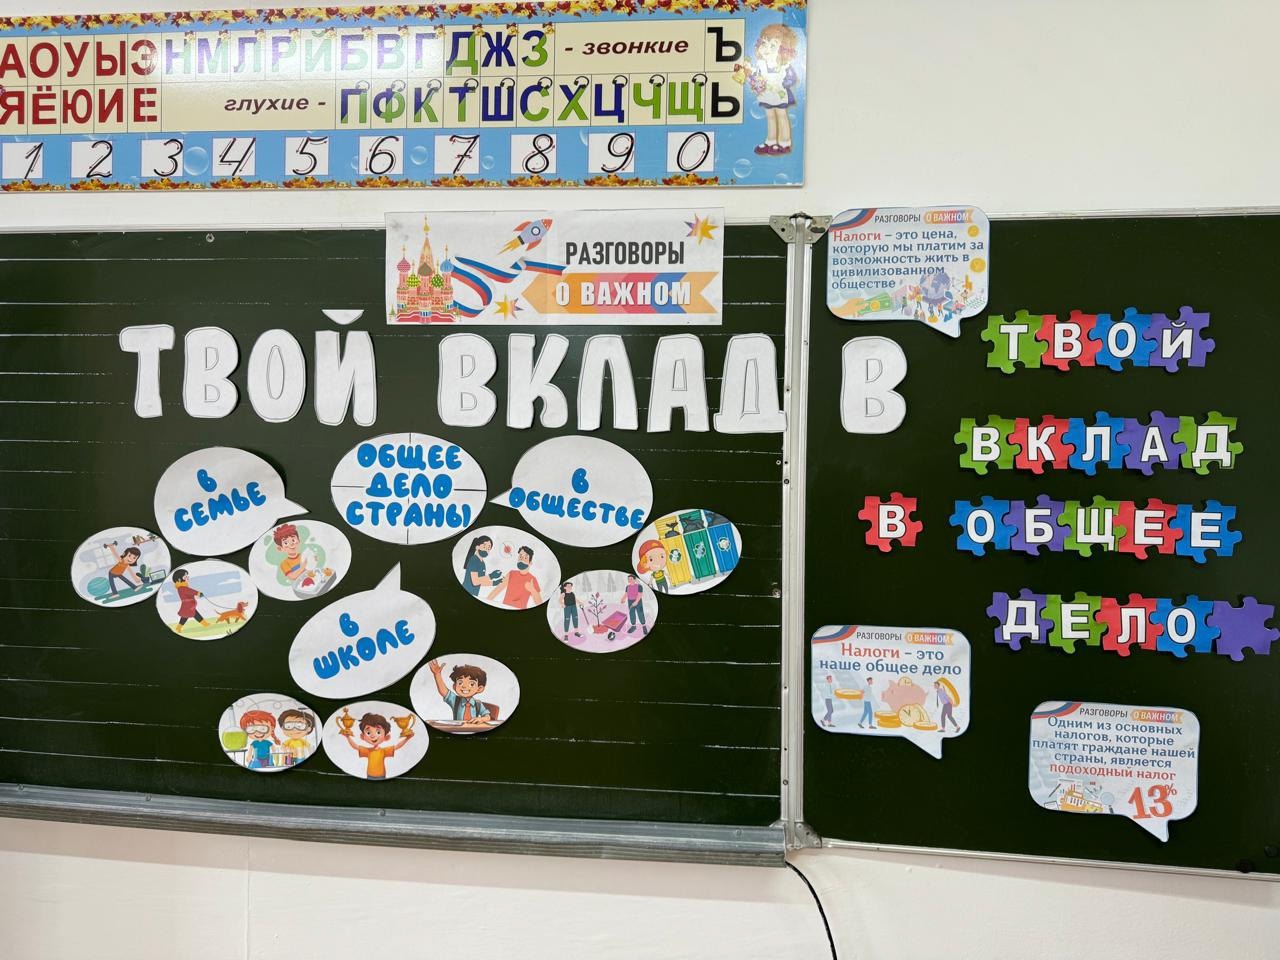 АОУЫЭНМЛРЙБВГДЖЗ - звонкие Ъ
ЯЁЮИЕ глухие - ПФКТШСХЦЧЩЬ
1 2 3 4 5 6 7 8 9 0
РАЗГОВОРЫ
О ВАЖНОМ
ТВОЙ ВКЛАД В
ОБЩЕЕ
ДЕЛО
СТРАНЫ
В
СЕМЬЕ
В
ОБЩЕСТВЕ
В
ШКОЛЕ
РАЗГОВОРЫ О ВАЖНОМ
Налоги – это цена,
которую мы платим за
возможность жить в
цивилизованном
обществе
ТВОЙ
ВКЛАД
В ОБЩЕЕ
ДЕЛО
РАЗГОВОРЫ О ВАЖНОМ
Налоги – это
наше общее дело
РАЗГОВОРЫ О ВАЖНОМ
Одним из основных
налогов, которые
платят граждане нашей
страны, является
подоходный налог
13%